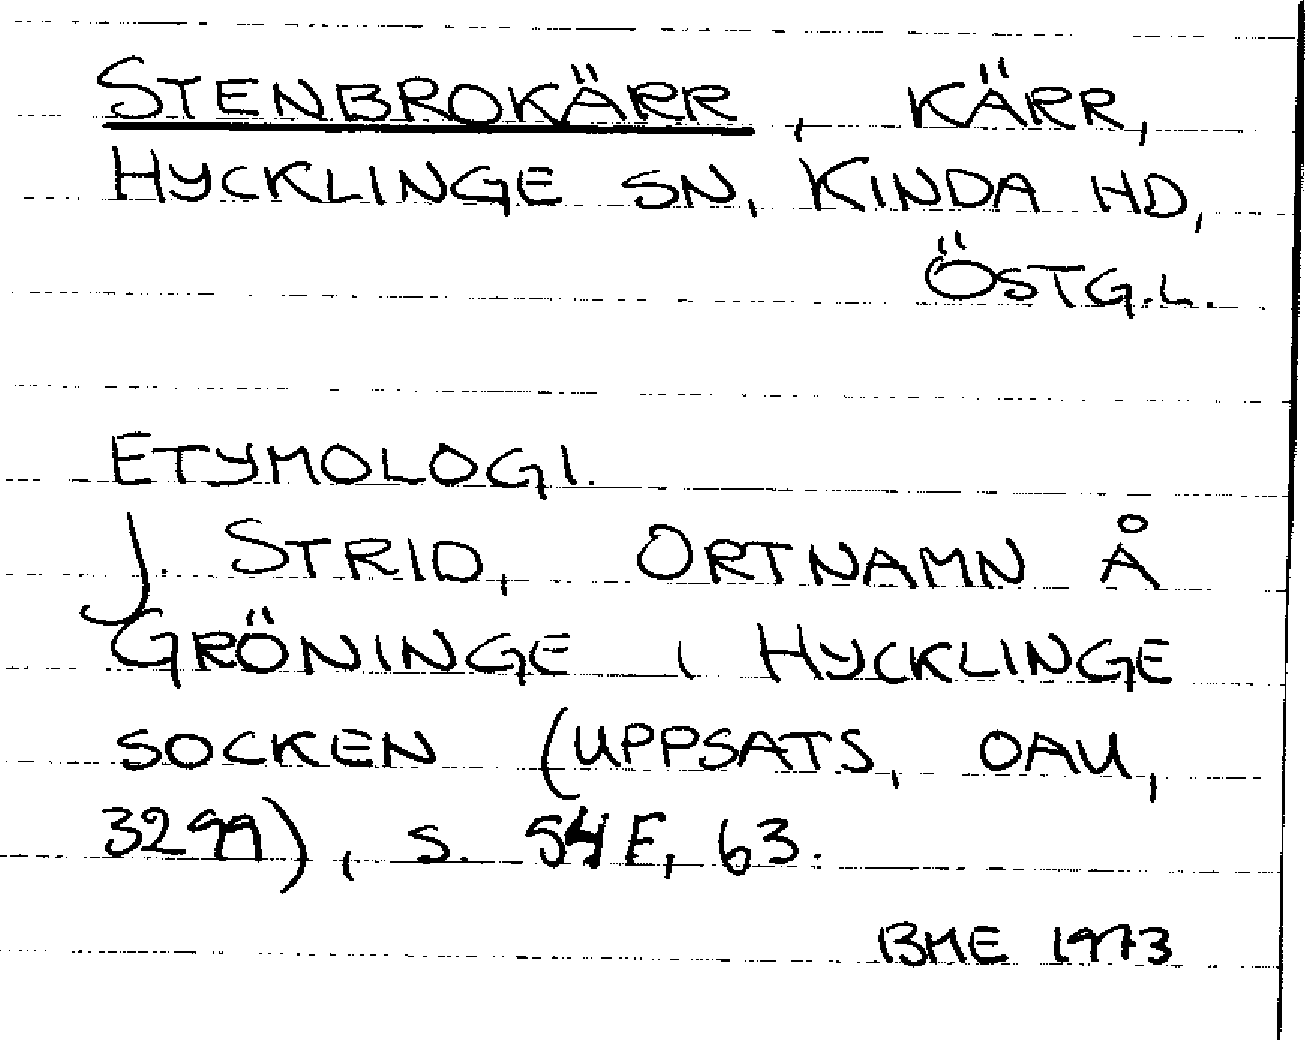 STENBROKÄRR, KÄRR,
HYCKLINGE SN, KINDA HD,
ÖSTG.L.
ETYMOLOGI.
J. STRID, ORTNAMN Å
GRÖNINGE I HYCKLINGE
SOCKEN (UPPSATS, OAU,
3299), S. 54 F, 63.
BME 1973